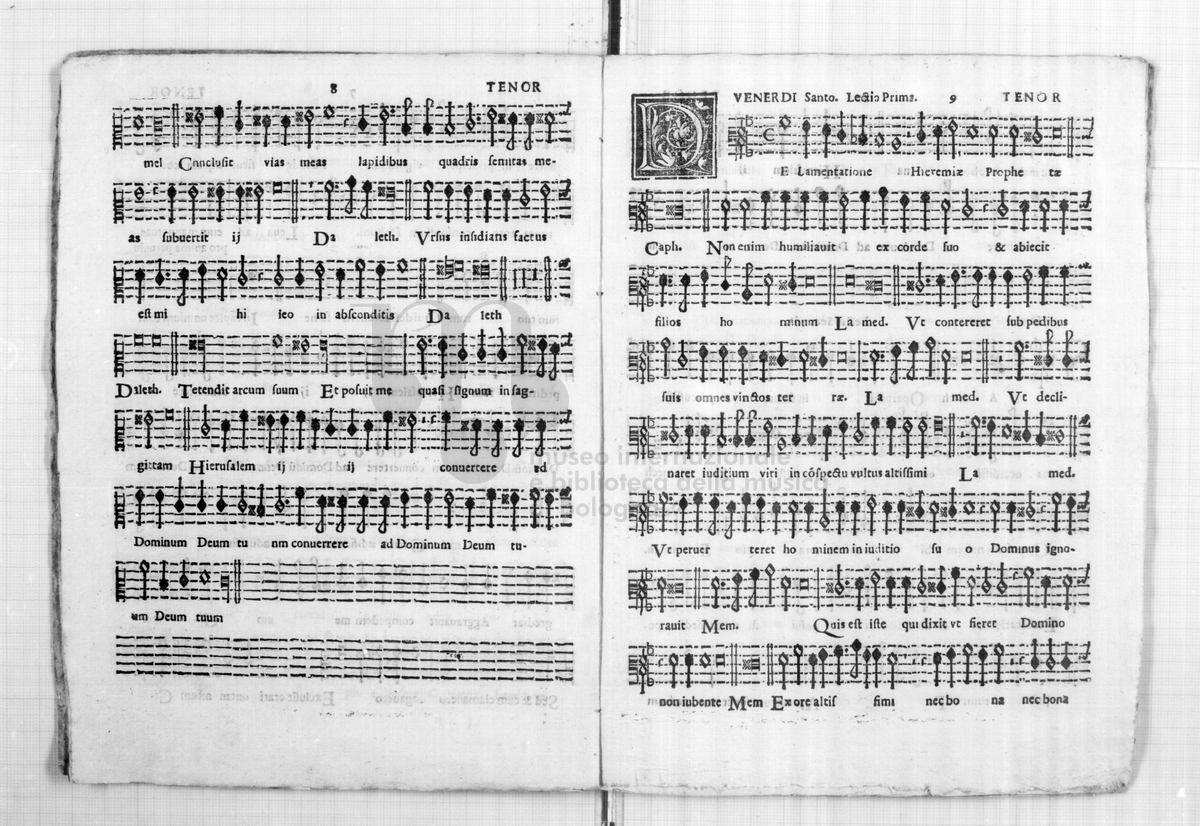 8 TENOR
mel Cnnclusit vias meas lapidibus quadris semitas me-
as subuertit ij Da leth. Vrsus insidians factus
est mi hi leo in absconditis Da leth
Daleth. Tetendit arcum suum Et posuit me quasi signum in sag-
gittam Hierusalem ij ij conuertere ad
Dominum Deum tu nm conuerrere ad Dominum Deum tu-
um Deum tuum
VENERDI Santo. Lectio Prima. 9 TENOR
DE Lamentatione Hieremiæ Prophe tæ
Caph. Non enim humiliauit ex corde suo & abiecit
filios ho minum La med. Vt contereret sub pedibus
suis omnes vinctos ter ræ. La med. Vt decli-
naret iuditium viri in cõspectu vultus altissimi La med.
Vt peruer teret ho minem in iuditio su o Dominus igno-
rauit Mem. Quis est iste qui dixit vt fieret Domino
non iubente Mem Ex ore altis simi nec bo na nec bona
museo internazionale
e biblioteca della musica
bologna